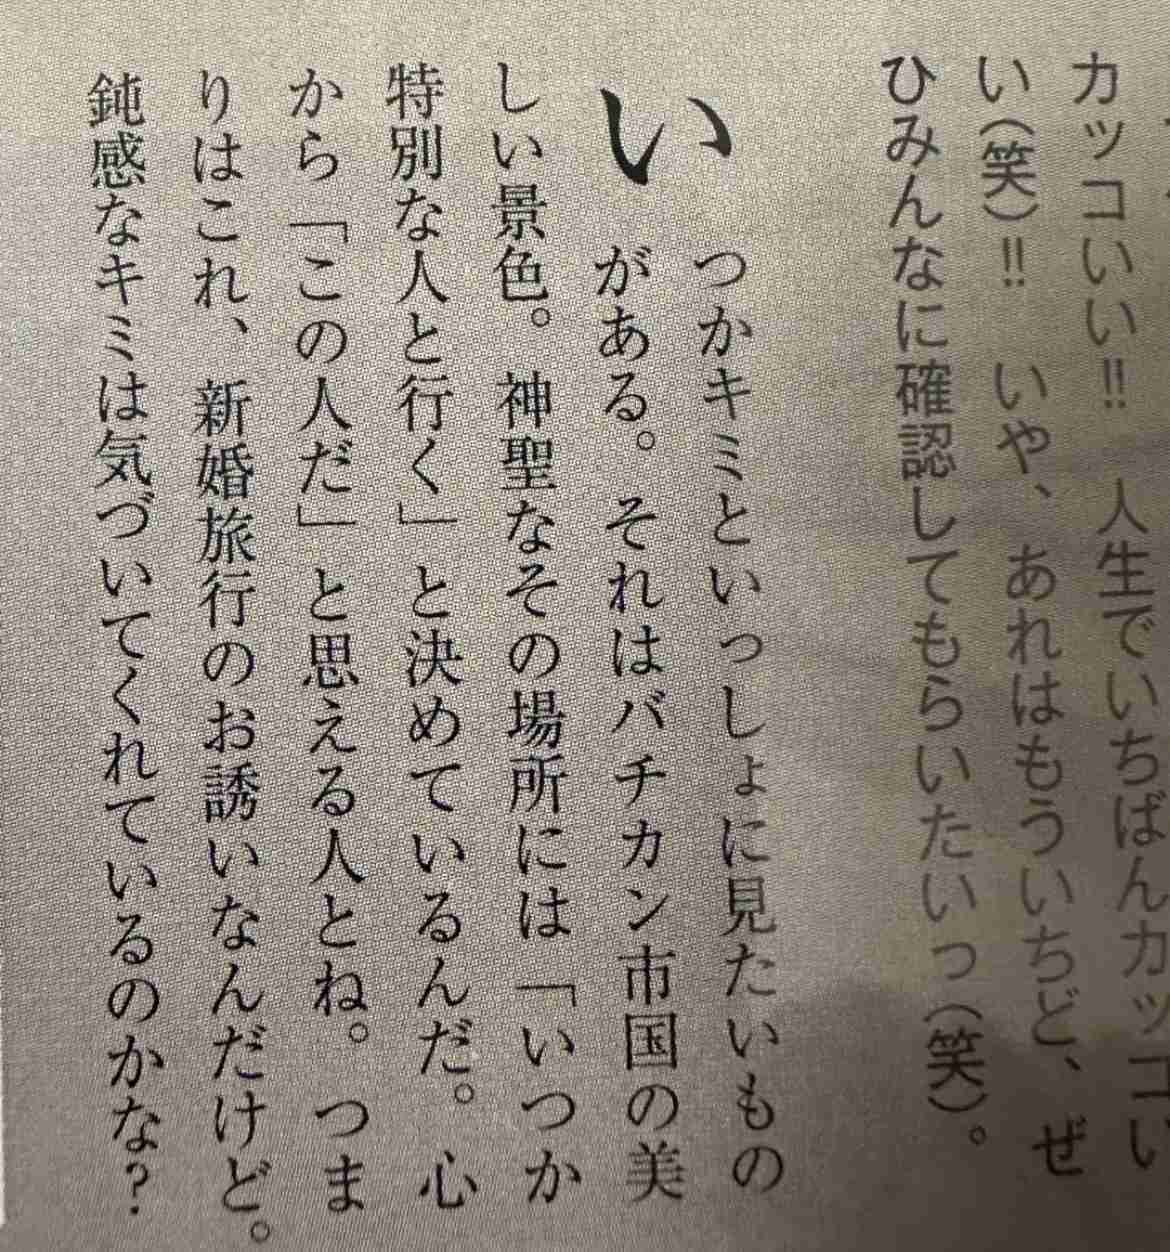 カッコいい!! 人生でいちばんカッコい
い(笑)!! いや、あれはもういちど、ぜ
ひみんなに確認してもらいたいっ(笑)。
いつかキミといっしょに見たいもの
がある。それはバチカン市国の美
しい景色。神聖なその場所には「いつか
特別な人と行く」と決めているんだ。心
から「この人だ」と思える人とね。つま
りはこれ、新婚旅行のお誘いなんだけど。
鈍感なキミは気づいてくれているのかな?